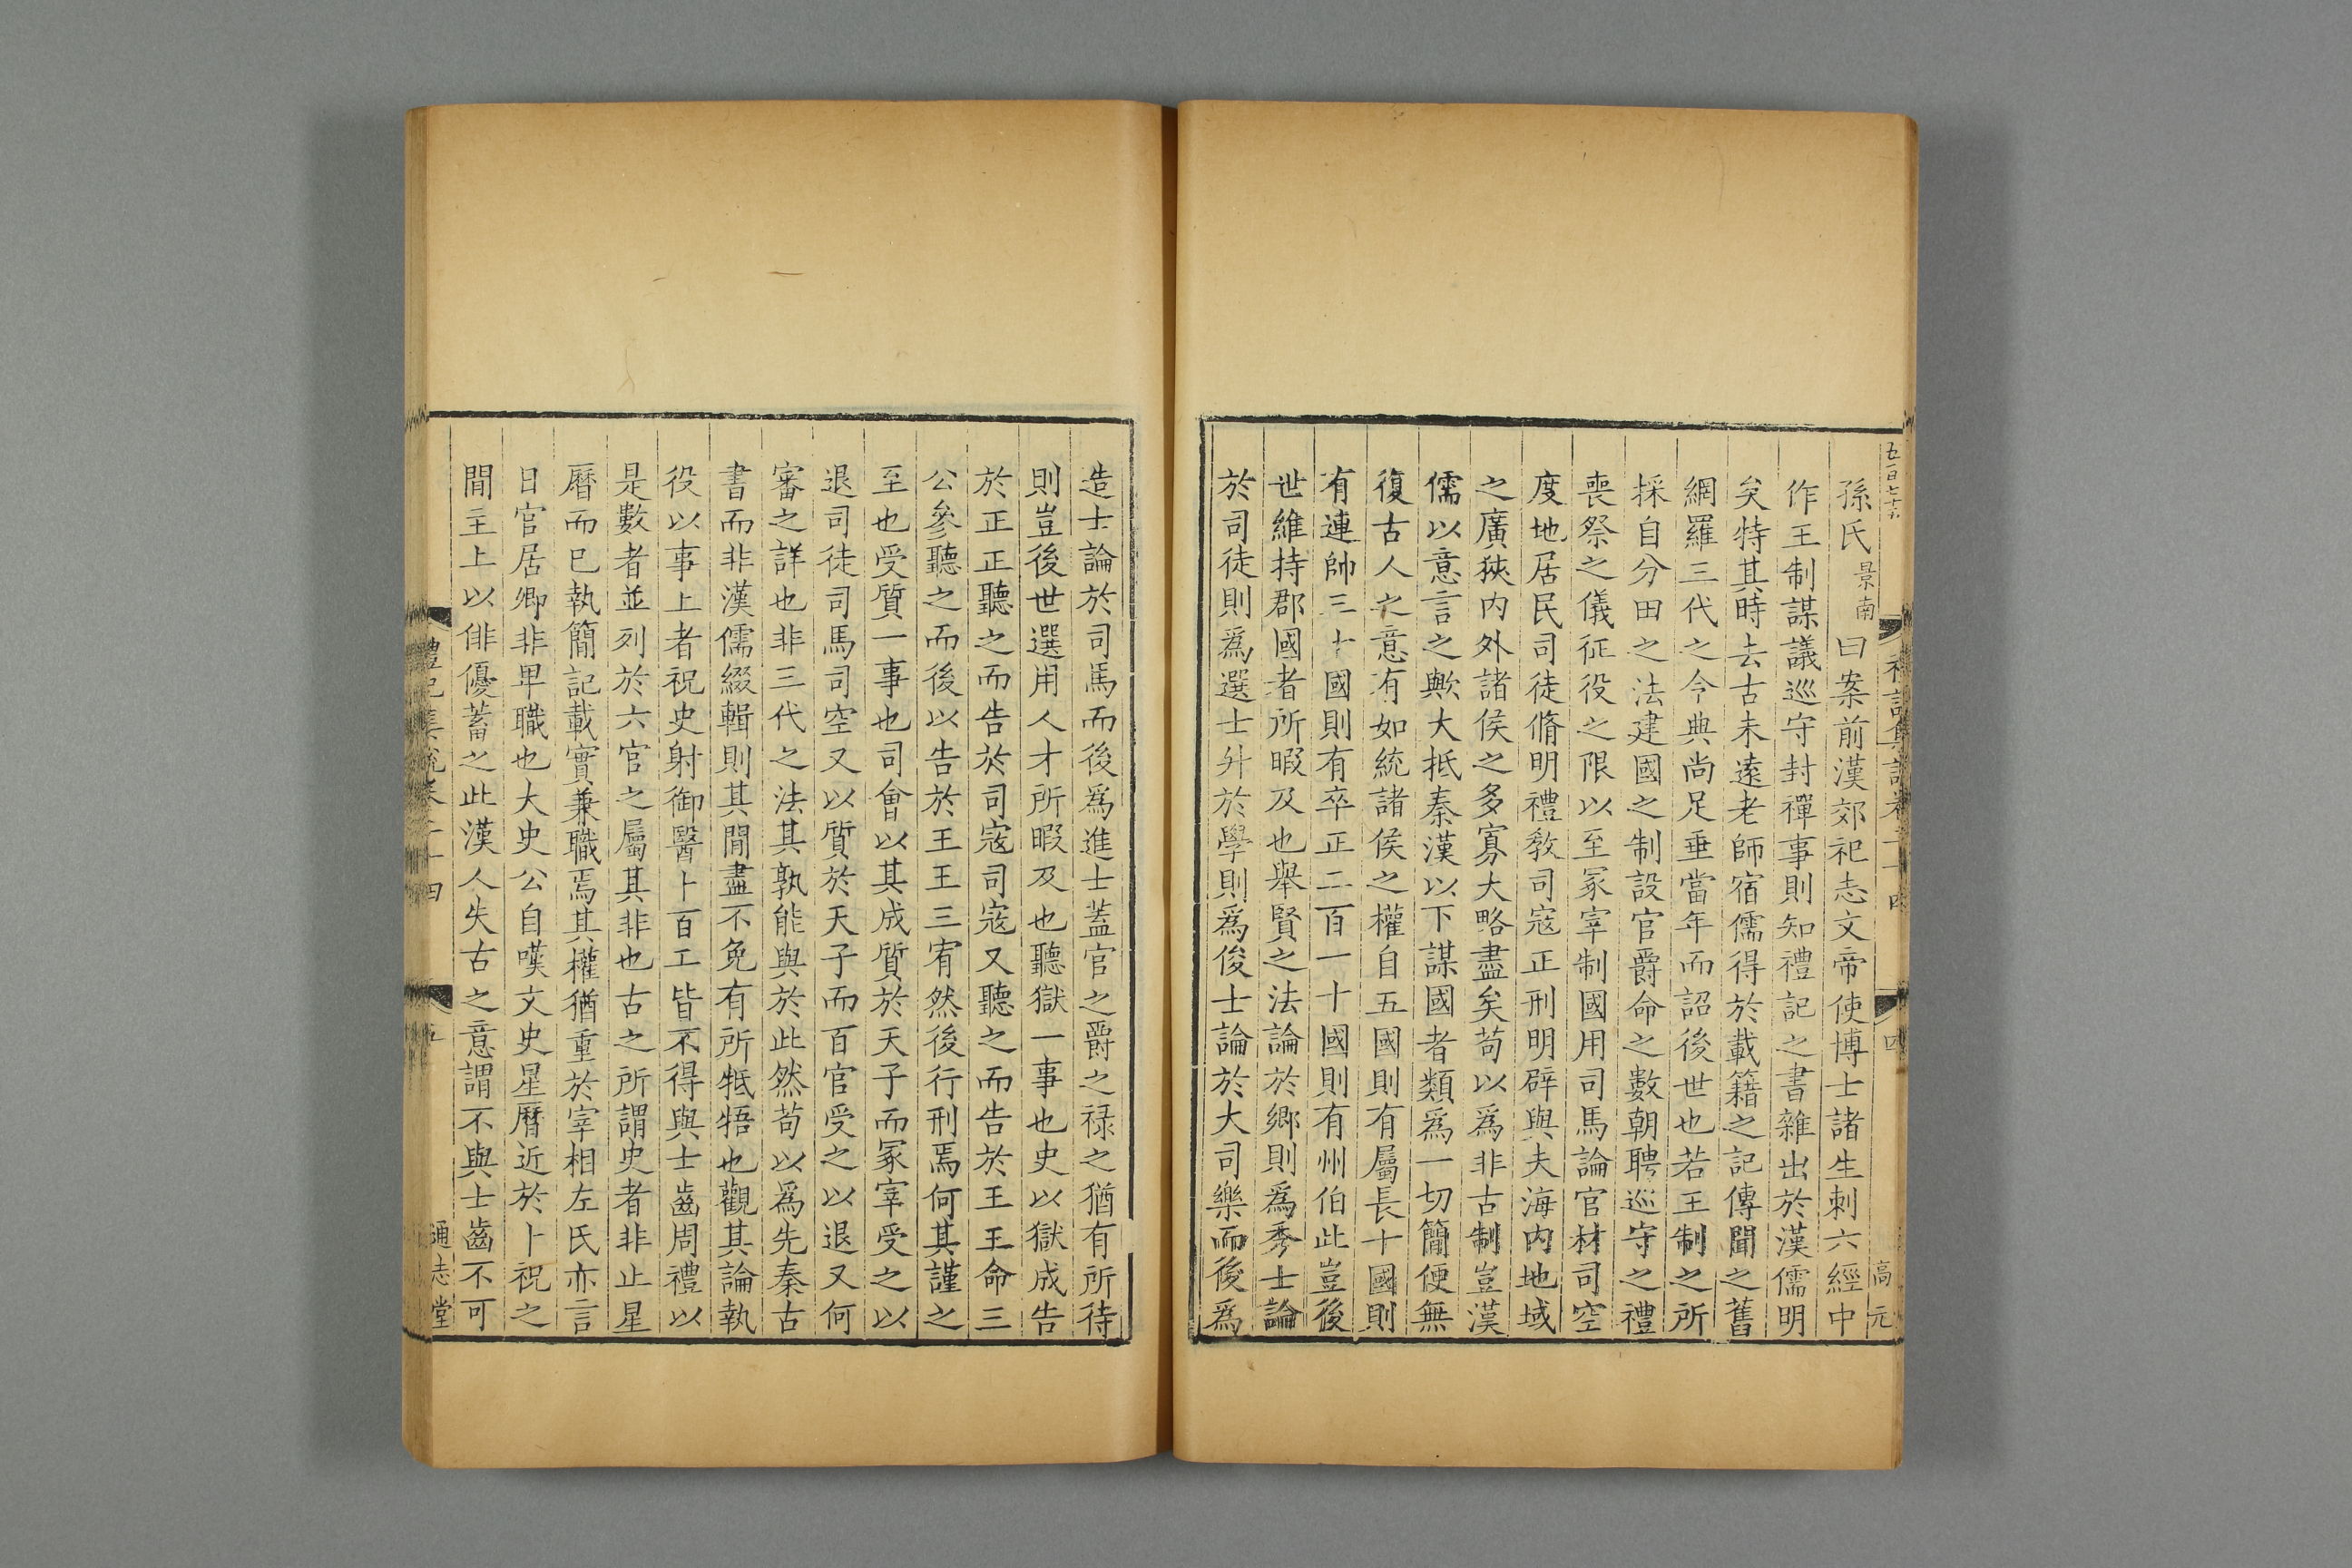 孫氏景南曰案前漢郊祀志文帝使博士諸生刺六經中
作王制謀議巡守封禪事則知禮記之書雜出於漢儒明
矣特其時去古未遠老師宿儒得於載籍之記傳聞之舊
網羅三代之令典尚足垂當年而詔後世也若王制之所
採自分田之法建國之制設官爵命之數朝聘巡守之禮
喪祭之儀征役之限以至冢宰制國用司馬論官材司空
度地居民司徒脩明禮敎司寇正刑明辟與夫海內地域
之廣狹內外諸侯之多寡大略盡矣苟以爲非古制豈漢
儒以意言之歟大抵秦漢以下謀國者類爲一切簡便無
復古人之意有如統諸侯之權自五國則有屬長十國則
有連帥三十國則有卒正二百一十國則有州伯此豈後
世維持郡國者所暇及也舉賢之法論於鄉則爲秀士論
於司徒則爲選士升於學則爲俊士論於大司樂而後爲
高元
造士論於司馬而後爲進士蓋官之爵之祿之猶有所待
則豈後世選用人才所暇及也聽獄一事也史以獄成告
於正正聽之而告於司寇司寇又聽之而告於王王命三
公參聽之而後以告於王王三宥然後行刑焉何其謹之
至也受質一事也司會以其成質於天子而冢宰受之以
退司徒司馬司空又以質於天子而百官受之以退又何
審之詳也非三代之法其孰能與於此然苟以爲先秦古
書而非漢儒綴輯則其閒盡不免有所牴牾也觀其論執
役以事上者祝史射御醫卜百工皆不得與士齒周禮以
是數者並列於六官之屬其非也古之所謂史者非止星
曆而已執簡記載實兼職焉其權猶重於宰相左氏亦言
日官居卿非卑職也大史公自嘆文史星曆近於卜祝之
閒主上以俳優蓄之此漢人失古之意謂不與士齒不可
禮記集說卷二十四
五
通志堂